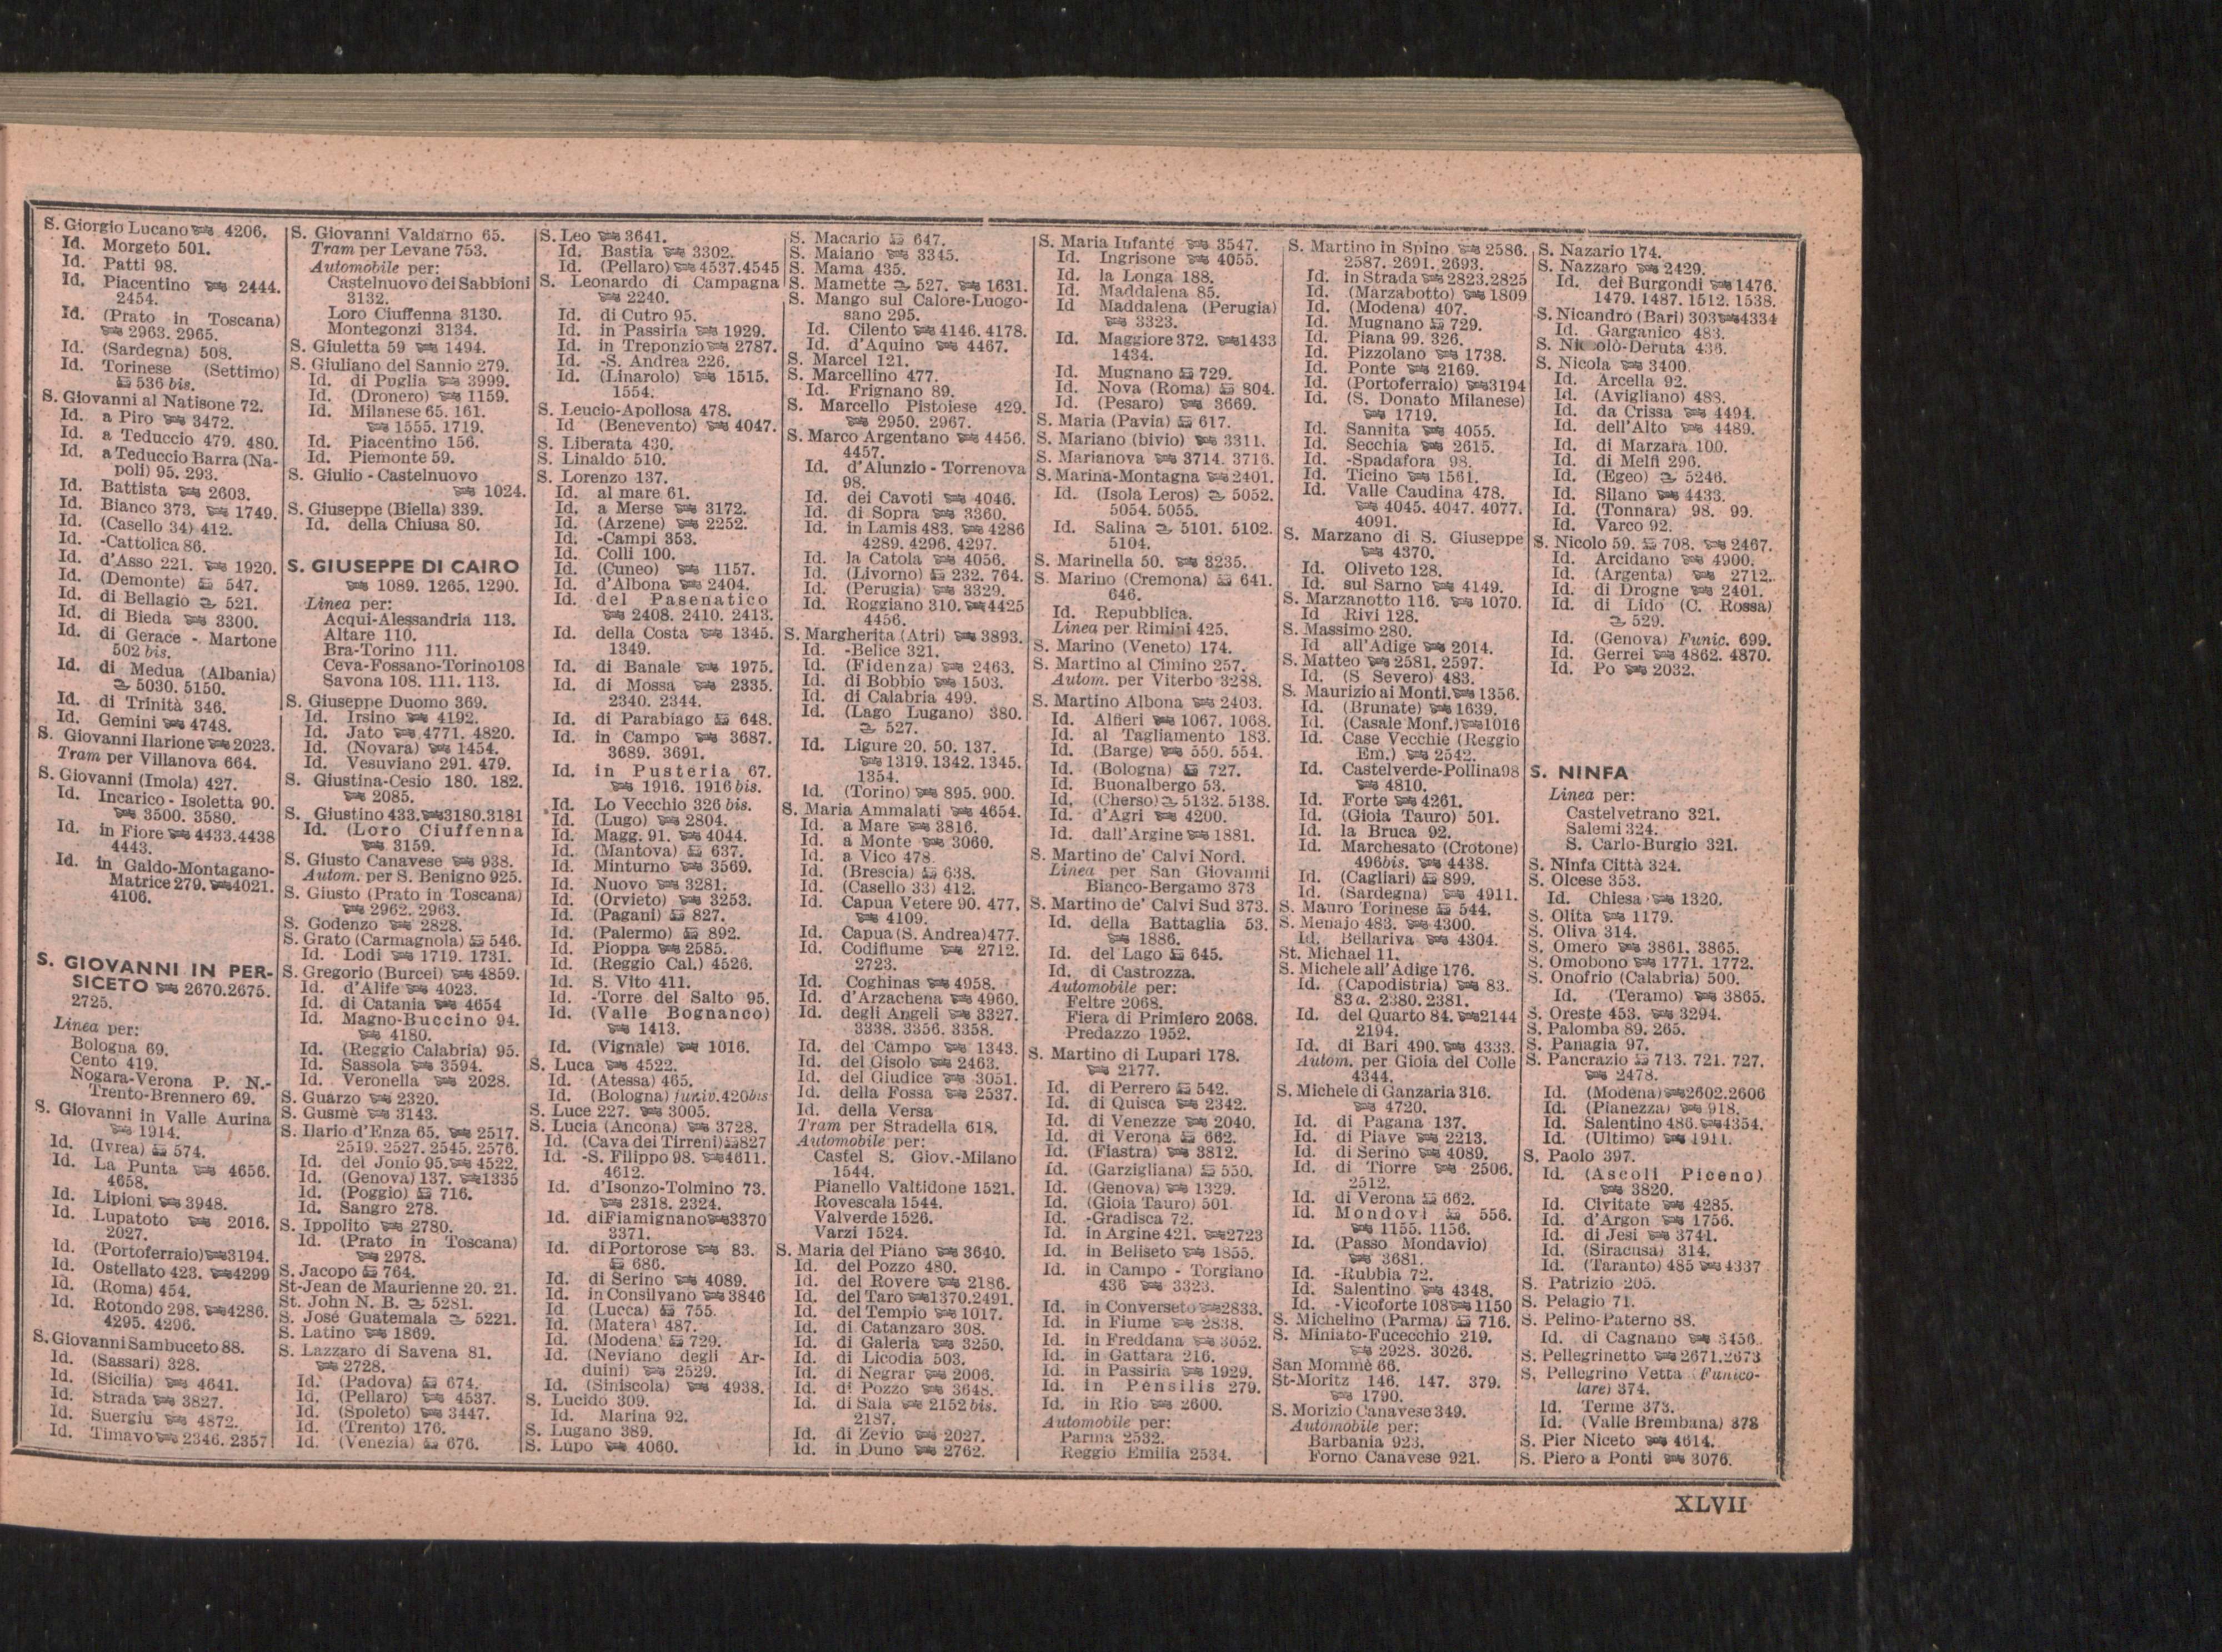 S. Giorgio Lucano 4206.
Id. Morgeto 501.
Id. Patti 98.
Id. Piacentino 2444.
2454.
Id. (Prato in Toscana)
2963. 2965.
Id. (Sardegna) 508.
Id. Torinese (Settimo)
536 bis.
S. Giovanni al Natisone 72.
Id. a Piro 3472.
Id. a Teduccio 479. 480.
Id. a Teduccio Barra (Na-
poli) 95. 293.
Id. Battista 2603.
Id. Bianco 373. 1749.
Id. (Casello 34) 412.
Id. -Cattolica 86.
Id. d'Asso 221. 1920.
Id. (Demonte) 547.
Id. di Bellagio 521.
Id. di Bieda 3300.
Id. di Gerace - Martone
502 bis.
Id. di Medua (Albania)
5030. 5150.
Id. di Trinità 346.
Id. Gemini 4748.
S. Giovanni Ilarione 2023.
Tram per Villanova 664.
S. Giovanni (Imola) 427.
Id. Incarico - Isoletta 90.
3500. 3580.
Id. in Fiore 4433.4438
4443.
Id. in Galdo-Montagano-
Matrice 279. 4021.
4106.
S. GIOVANNI IN PER-
SICETO 2670.2675.
2725.
Linea per:
Bologna 69.
Cento 419.
Nogara-Verona P. N.-
Trento-Brennero 69.
S. Giovanni in Valle Aurina
1914.
Id. (Ivrea) 574.
Id. La Punta 4656.
4658.
Id. Lipioni 3948.
Id. Lupatoto 2016.
2027.
Id. (Portoferraio) 3194.
Id. Ostellato 423. 4299
Id. (Roma) 454.
Id. Rotondo 298. 4286.
4295. 4296.
S. Giovanni Sambuceto 88.
Id. (Sassari) 328.
Id. (Sicilia) 4641.
Id. Strada 3827.
Id. Suergiu 4872.
Id. Timavo 2346. 2357
S. Giovanni Valdarno 65.
Tram per Levane 753.
Automobile per:
Castelnuovo dei Sabbioni
3132.
Loro Ciuffenna 3130.
Montegonzi 3134.
S. Giuletta 59 1494.
S. Giuliano del Sannio 279.
Id. di Puglia 3999.
Id. (Dronero) 1159.
Id. Milanese 65. 161.
1555. 1719.
Id. Piacentino 156.
Id. Piemonte 59.
S. Giulio - Castelnuovo
1024.
S. Giuseppe (Biella) 339.
Id. della Chiusa 80.
S. GIUSEPPE DI CAIRO
1089. 1265. 1290.
Linea per:
Acqui-Alessandria 113.
Altare 110.
Bra-Torino 111.
Ceva-Fossano-Torino 108
Savona 108. 111. 113.
S. Giuseppe Duomo 369.
Id. Irsino 4192.
Id. Jato 4771. 4820.
Id. (Novara) 1454.
Id. Vesuviano 291. 479.
S. Giustina-Cesio 180. 182.
2085.
S. Giustino 433. 3180.3181
Id. (Loro Ciuffenna
3159.
S. Giusto Canavese 938.
Autom. per S. Benigno 925.
S. Giusto (Prato in Toscana)
2962. 2963.
S. Godenzo 2828.
S. Grato (Carmagnola) 546.
Id. Lodi 1719. 1731.
S. Gregorio (Burcei) 4859.
Id. d'Alife 4023.
Id. di Catania 4654
Id. Magno-Buccino 94.
4180.
Id. (Reggio Calabria) 95.
Id. Sassola 3594.
Id. Veronella 2028.
S. Guarzo 2320.
S. Gusmè 3143.
S. Ilario d'Enza 65. 2517.
2519. 2527. 2545. 2576.
Id. del Jonio 95. 4522.
Id. (Genova) 137. 1335
Id. (Poggio) 716.
Id. Sangro 278.
S. Ippolito 2780.
Id. (Prato in Toscana)
2978.
S. Jacopo 764.
St-Jean de Maurienne 20. 21.
St. John N. B. 5281.
S. José Guatemala 5221.
S. Latino 1869.
S. Lazzaro di Savena 81.
2728.
Id. (Padova) 674.
Id. (Pellaro) 4537.
Id. (Spoleto) 3447.
Id. (Trento) 176.
Id. (Venezia) 676.
S. Leo 3641.
Id. Bastia 3302.
Id. (Pellaro) 4537.4545
S. Leonardo di Campagna
2240.
Id. di Cutro 95.
Id. in Passiria 1929.
Id. in Treponzio 2787.
Id. -S. Andrea 226.
Id. (Linarolo) 1515.
1554.
S. Leucio-Apollosa 478.
Id (Benevento) 4047.
S. Liberata 430.
S. Linaldo 510.
S. Lorenzo 137.
Id. al mare 61.
Id. a Merse 3172.
Id. (Arzene) 2252.
Id. -Campi 353.
Id. Colli 100.
Id. (Cuneo) 1157.
Id. d'Albona 2404.
Id. del Pasenatico
2408. 2410. 2413.
Id. della Costa 1345.
1349.
Id. di Banale 1975.
Id. di Mossa 2335.
2340. 2344.
Id. di Parabiago 648.
Id. in Campo 3687.
3689. 3691.
Id. in Pusteria 67.
1916. 1916 bis.
Id. Lo Vecchio 326 bis.
Id. (Lugo) 2804.
Id. Magg. 91. 4044.
Id. (Mantova) 637.
Id. Minturno 3569.
Id. Nuovo 3281.
Id. (Orvieto) 3253.
Id. (Pagani) 827.
Id. (Palermo) 892.
Id. Pioppa 2585.
Id. (Reggio Cal.) 4526.
Id. S. Vito 411.
Id. -Torre del Salto 95.
Id. (Valle Bognanco)
1413.
Id. (Vignale) 1016.
S. Luca 4522.
Id. (Atessa) 465.
Id. (Bologna) funiv. 420bis
S. Luce 227. 3005.
S. Lucia (Ancona) 3728.
Id. (Cava dei Tirreni) 827
Id. -S. Filippo 98. 4611.
4612.
Id. d'Isonzo-Tolmino 73.
2318. 2324.
Id. di Fiamignano 3370
3371.
Id. di Portorose 83.
686.
Id. di Serino 4089.
Id. in Consilvano 3846
Id. (Lucca) 755.
Id. (Matera) 487.
Id. (Modena) 729.
Id. (Neviano degli Ar-
duini) 2529.
Id. (Siniscola) 4938.
S. Lucido 309.
Id. Marina 92.
S. Lugano 389.
S. Lupo 4060.
S. Macario 647.
S. Maiano 3345.
S. Mama 435.
S. Mamette 527. 1631.
S. Mango sul Calore-Luogo-
sano 295.
Id. Cilento 4146. 4178.
Id. d'Aquino 4467.
S. Marcel 121.
S. Marcellino 477.
Id. Frignano 89.
S. Marcello Pistoiese 429.
2950. 2967.
S. Marco Argentano 4456.
4457.
Id. d'Alunzio - Torrenova
98.
Id. dei Cavoti 4046.
Id. di Sopra 3360.
Id. in Lamis 483. 4286
4289. 4296. 4297.
Id. la Catola 4056.
Id. (Livorno) 232. 764.
Id. (Perugia) 3329.
Id. Roggiano 310. 4425
4456.
S. Margherita (Atri) 3893.
Id. -Belice 321.
Id. (Fidenza) 2463.
Id. di Bobbio 1503.
Id. di Calabria 499.
Id. (Lago Lugano) 380.
527.
Id. Ligure 20. 50. 137.
1319. 1342. 1345.
1354.
Id. (Torino) 895. 900.
S. Maria Ammalati 4654.
Id. a Mare 3816.
Id. a Monte 3060.
Id. a Vico 478.
Id. (Brescia) 638.
Id. (Casello 33) 412.
Id. Capua Vetere 90. 477.
4109.
Id. Capua (S. Andrea) 477.
Id. Codifiume 2712.
2723.
Id. Coghinas 4958.
Id. d'Arzachena 4960.
Id. degli Angeli 3327.
3338. 3356. 3358.
Id. del Campo 1343.
Id. del Gisolo 2463.
Id. del Giudice 3051.
Id. della Fossa 2537.
Id. della Versa
Tram per Stradella 618.
Automobile per:
Castel S. Giov.-Milano
1544.
Pianello Valtidone 1521.
Rovescala 1544.
Valverde 1526.
Varzi 1524.
S. Maria del Piano 3640.
Id. del Pozzo 480.
Id. del Rovere 2186.
Id. del Taro 1370.2491.
Id. del Tempio 1017.
Id. di Catanzaro 308.
Id. di Galeria 3250.
Id. di Licodia 503.
Id. di Negrar 2006.
Id. di Pozzo 3648.
Id. di Sala 2152 bis.
2187.
Id. di Zevio 2027.
Id. in Duno 2762.
S. Maria Infante 3547.
Id. Ingrisone 4055.
Id. la Longa 188.
Id. Maddalena 85.
Id Maddalena (Perugia)
3323.
Id. Maggiore 372. 1433
1434.
Id. Mugnano 729.
Id. Nova (Roma) 804.
Id. (Pesaro) 3669.
S. Maria (Pavia) 617.
S. Mariano (bivio) 3311.
S. Marianova 3714. 3716.
S. Marina-Montagna 2401.
Id. (Isola Leros) 5052.
5054. 5055.
Id. Salina 5101. 5102.
5104.
S. Marinella 50. 3235.
S. Marino (Cremona) 641.
646.
Id. Repubblica.
Linea per Rimini 425.
S. Marino (Veneto) 174.
S. Martino al Cimino 257.
Autom. per Viterbo 3288.
S. Martino Albona 2403.
Id. Alfieri 1067. 1068.
Id. al Tagliamento 183.
Id. (Barge) 550. 554.
Id. (Bologna) 727.
Id. Buonalbergo 53.
Id. (Cherso) 5132. 5138.
Id. d'Agri 4200.
Id. dall'Argine 1881.
S. Martino de' Calvi Nord.
Linea per San Giovanni
Bianco-Bergamo 373
S. Martino de' Calvi Sud 373.
Id. della Battaglia 53.
1886.
Id. del Lago 645.
Id. di Castrozza.
Automobile per:
Feltre 2068.
Fiera di Primiero 2068.
Predazzo 1952.
S. Martino di Lupari 178.
2177.
Id. di Perrero 542.
Id. di Quisca 2342.
Id. di Venezze 2040.
Id. di Verona 662.
Id. (Fiastra) 3812.
Id. (Garzigliana) 550.
Id. (Genova) 1329.
Id. (Gioia Tauro) 501
Id. -Gradisca 72.
Id. in Argine 421. 2723
Id. in Beliseto 1855.
Id. in Campo - Torgiano
436 3323.
Id. in Converseto 2833.
Id. in Fiume 2838.
Id. in Freddana 3052.
Id. in Gattara 216.
Id. in Passiria 1929.
Id. in Pensilis 279.
Id. in Rio 2600.
Automobile per:
Parma 2532.
Reggio Emilia 2534.
S. Martino in Spino 2586.
2587. 2691. 2693.
Id. in Strada 2823.2825
Id. (Marzabotto) 1809
Id. (Modena) 407.
Id. Mugnano 729.
Id. Piana 99. 326.
Id. Pizzolano 1738.
Id. Ponte 2169.
Id. (Portoferraio) 3194
Id. (S. Donato Milanese)
1719.
Id. Sannita 4055.
Id. Secchia 2615.
Id. -Spadafora 98.
Id. Ticino 1561.
Id. Valle Caudina 478.
4045. 4047. 4077.
4091.
S. Marzano di S. Giuseppe
4370.
Id. Oliveto 128.
Id. sul Sarno 4149.
S. Marzanotto 116. 1070.
Id Rivi 128.
S. Massimo 280.
Id all'Adige 2014.
S. Matteo 2581. 2597.
Id. (S Severo) 483.
S. Maurizio ai Monti. 1356.
Id. (Brunate) 1639.
Id. (Casale Monf.) 1016
Id. Case Vecchie (Reggio
Em.) 2542.
Id. Castelverde-Pollina 98
4810.
Id. Forte 4261.
Id. (Gioia Tauro) 501.
Id. la Bruca 92.
Id. Marchesato (Crotone)
496bis. 4438.
Id. (Cagliari) 899.
Id. (Sardegna) 4911.
S. Mauro Torinese 544.
S. Menajo 483. 4300.
Id. Bellariva 4304.
St. Michael 11.
S. Michele all'Adige 176.
Id. (Capodistria) 83.
83 a. 2380. 2381.
Id. del Quarto 84. 2144
2194.
Id. di Bari 490. 4333.
Autom. per Gioia del Colle
4344.
S. Michele di Ganzaria 316.
4720.
Id. di Pagana 137.
Id. di Piave 2213.
Id. di Serino 4089.
Id. di Tiorre 2506.
2512.
Id. di Verona 662.
Id. Mondovì 556.
1155. 1156.
Id. (Passo Mondavio)
3681.
Id. -Rubbia 72.
Id. Salentino 4348.
Id. -Vicoforte 108 1150
S. Michelino (Parma) 716.
S. Miniato-Fucecchio 219.
2928. 3026.
San Mommè 66.
St-Moritz 146. 147. 379.
1790.
S. Morizio Canavese 349.
Automobile per:
Barbania 923.
Forno Canavese 921.
S. Nazario 174.
S. Nazzaro 2429.
Id. dei Burgondi 1476.
1479. 1487. 1512. 1538.
S. Nicandro (Bari) 303 4334
Id. Garganico 483.
S. Nic olò-Deruta 436.
S. Nicola 3400.
Id. Arcella 92.
Id. (Avigliano) 488.
Id. da Crissa 4494.
Id. dell'Alto 4489.
Id. di Marzara 100.
Id. di Melfi 296.
Id. (Egeo) 5246.
Id. Silano 4433.
Id. (Tonnara) 98. 99.
Id. Varco 92.
S. Nicolo 59. 708. 2467.
Id. Arcidano 4900.
Id. (Argenta) 2712.
Id. di Drogne 2401.
Id. di Lido (C. Rossa)
529.
Id. (Genova) Funic. 699.
Id. Gerrei 4862. 4870.
Id. Po 2032.
S. NINFA
Linea per:
Castelvetrano 321.
Salemi 324.
S. Carlo-Burgio 321.
S. Ninfa Città 324.
S. Olcese 353.
Id. Chiesa 1320.
S. Olita 1179.
S. Oliva 314.
S. Omero 3861. 3865.
S. Omobono 1771. 1772.
S. Onofrio (Calabria) 500.
Id. (Teramo) 3865.
S. Oreste 453. 3294.
S. Palomba 89. 265.
S. Panagia 97.
S. Pancrazio 713. 721. 727.
2478.
Id. (Modena) 2602.2606
Id. (Pianezza) 918.
Id. Salentino 486. 4354.
Id. (Ultimo) 1911.
S. Paolo 397.
Id. (Ascoli Piceno)
3820.
Id. Civitate 4285.
Id. d'Argon 1756.
Id. di Jesi 3741.
Id. (Siracusa) 314.
Id. (Taranto) 485 4337
S. Patrizio 205.
S. Pelagio 71.
S. Pelino-Paterno 88.
Id. di Cagnano 3456.
S. Pellegrinetto 2671.2673
S. Pellegrino Vetta (Funico-
lare) 374.
Id. Terme 373.
Id. (Valle Brembana) 373
S. Pier Niceto 4614.
S. Piero a Ponti 3076.
XLVII